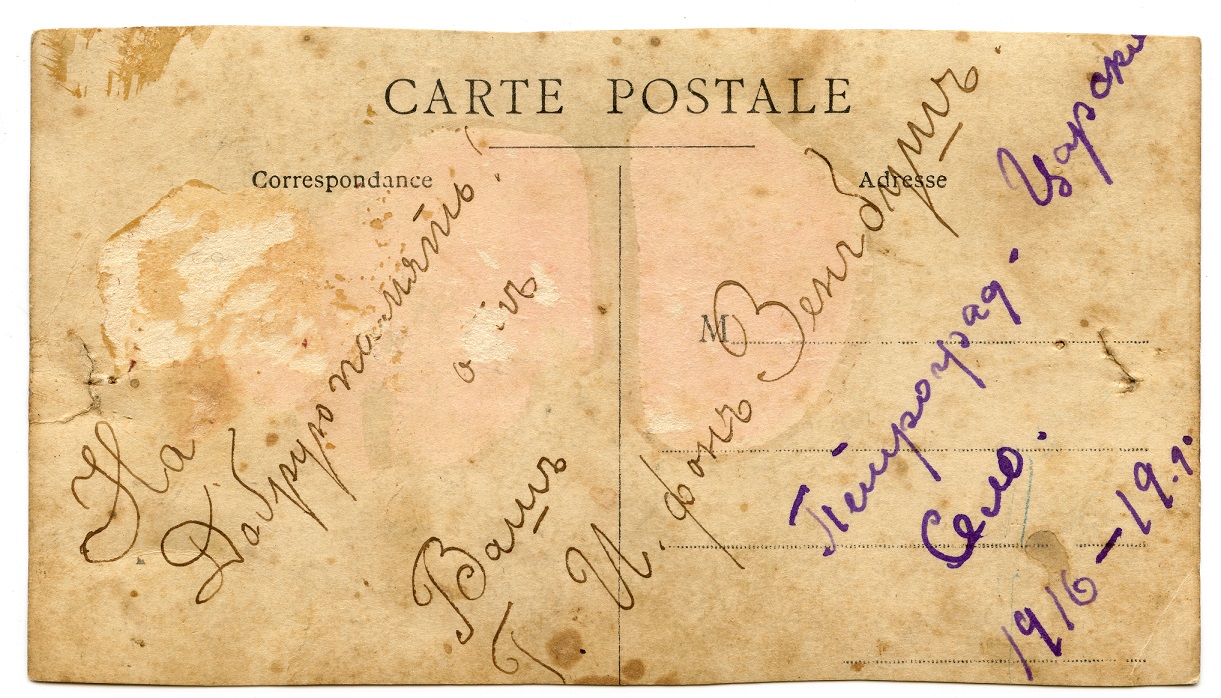 CARTE POSTALE
Correspondance
Adresse
M
На
Добрую память!
о
Вашъ
Г. И. фонъ Венбушъ.
Петроград. Царское
Село.
1916 – 19 г.